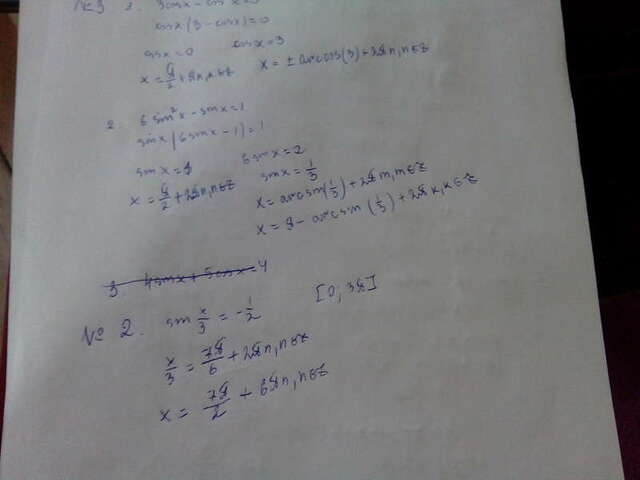 №3 1. 3cosx - cos²x = 0
cosx(3 - cosx) = 0
cosx = 0 cosx = 3
x = π/2 + πn, n∈Z x = ± arccos(3) + 2πn, n∈Z
2. 6 sin²x - sinx = 1
sinx(6sinx - 1) = 1
sinx = 1 6sinx = 2
x = π/2 + 2πn, n∈Z sinx = 1/3
x = arcsin(1/3) + 2πm, m∈Z
x = π - arcsin(1/3) + 2πk, k∈Z
3 4sinx + 5cosx = 4
№ 2. sin x/3 = -1/2 [0; 3π]
x/3 = 7π/6 + 2πn, n∈Z
x = 7π/2 + 6πn, n∈Z